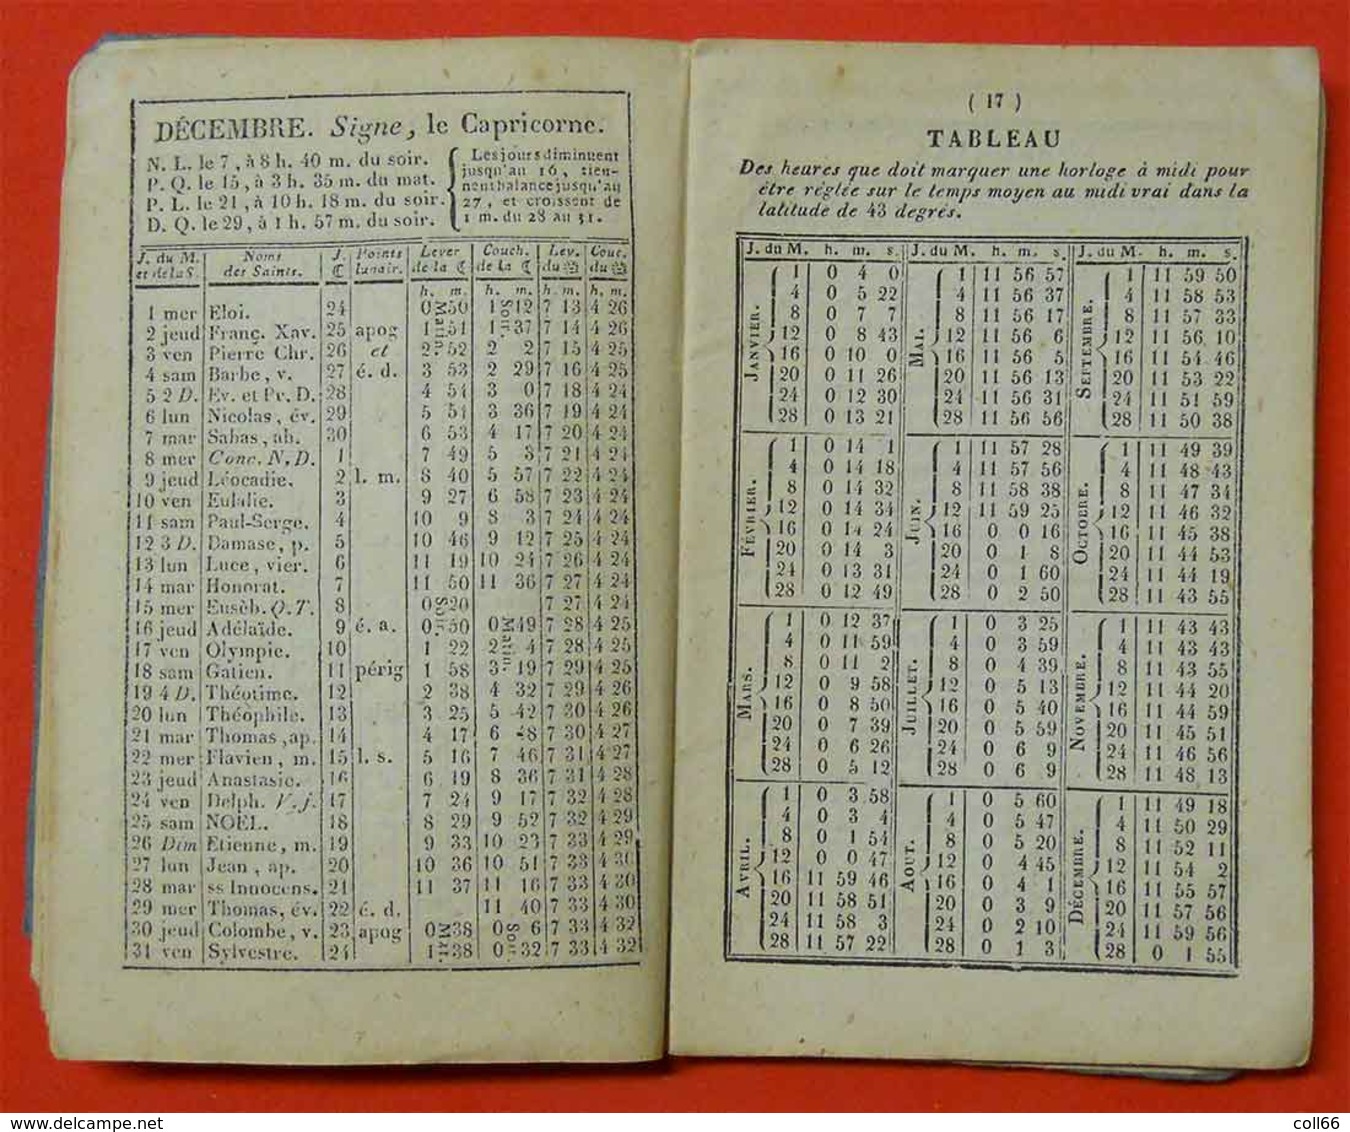 DÉCEMBRE. Signe, le Capricorne.
N. L. le 7, à 8 h. 40 m. du soir.
P. Q. le 15, à 3 h. 35 m. du mat.
P. L. le 21, à 10 h. 18 m. du soir.
D. Q. le 29, à 1 h. 57 m. du soir.
Les jours diminuent
jusqu'au 16, tien-
nent balance jusqu'au
27, et croissent de
1 m. du 28 au 31.
J. du M. et de la S. Noms des Saints. J. ☾ Points lunair. Lever de la ☾ Couch. de la ☾ Lev. du Couc. du
h. m. h. m. h. m. h. m.
1 mer Eloi. 24 0 Matin 50 1 Soir 12 7 13 4 26
2 jeud Franç. Xav. 25 apog 1 51 1 37 7 14 4 26
3 ven Pierre Chr. 26 et 2 52 2 2 7 15 4 25
4 sam Barbe, v. 27 é. d. 3 53 2 29 7 16 4 25
5 2 D. Ev. et Pr. D. 28 4 54 3 0 7 18 4 24
6 lun Nicolas, év. 29 5 54 3 36 7 19 4 24
7 mar Sabas, ab. 30 6 53 4 17 7 20 4 24
8 mer Conc. N. D. 1 7 49 5 3 7 21 4 24
9 jeud Léocadie. 2 l. m. 8 40 5 57 7 22 4 24
10 ven Eulalie. 3 9 27 6 58 7 23 4 24
11 sam Paul-Serge. 4 10 9 8 3 7 24 4 24
12 3 D. Damase, p. 5 10 46 9 12 7 25 4 24
13 lun Luce, vier. 6 11 19 10 24 7 26 4 24
14 mar Honorat. 7 11 50 11 36 7 27 4 24
15 mer Eusèb. Q. T. 8 0 Soir 20 7 27 4 24
16 jeud Adélaïde. 9 é. a. 0 50 0 Matin 49 7 28 4 25
17 ven Olympie. 10 1 22 2 4 7 28 4 25
18 sam Gatien. 11 périg 1 58 3 19 7 29 4 25
19 4 D. Théotime. 12 2 38 4 32 7 29 4 26
20 lun Théophile. 13 3 25 5 42 7 30 4 26
21 mar Thomas, ap. 14 4 17 6 48 7 30 4 27
22 mer Flavien, m. 15 l. s. 5 16 7 46 7 31 4 27
23 jeud Anastasie. 16 6 19 8 36 7 31 4 28
24 ven Delph. V. j. 17 7 24 9 17 7 32 4 28
25 sam NOËL. 18 8 29 9 52 7 32 4 29
26 Dim Etienne, m. 19 9 33 10 23 7 33 4 29
27 lun Jean, ap. 20 10 36 10 51 7 33 4 30
28 mar ss Innocens. 21 11 37 11 16 7 33 4 30
29 mer Thomas, év. 22 é. d. 11 40 7 33 4 30
30 jeud Colombe, v. 23 apog 0 Mat. 38 0 Soir 6 7 33 4 32
31 ven Sylvestre. 24 1 38 0 32 7 33 4 32
( 17 )
TABLEAU
Des heures que doit marquer une horloge à midi pour
être réglée sur le temps moyen au midi vrai dans la
latitude de 43 degrés.
J. du M. h. m. s. J. du M. h. m. s. J. du M. h. m. s.
JANVIER. MAI. SEPTEMBRE.
1 0 4 0 1 11 56 57 1 11 59 50
4 0 5 22 4 11 56 37 4 11 58 53
8 0 7 7 8 11 56 17 8 11 57 33
12 0 8 43 12 11 56 6 12 11 56 10
16 0 10 0 16 11 56 5 16 11 54 46
20 0 11 26 20 11 56 13 20 11 53 22
24 0 12 30 24 11 56 31 24 11 51 59
28 0 13 21 28 11 56 56 28 11 50 38
FÉVRIER. JUIN. OCTOBRE.
1 0 14 1 1 11 57 28 1 11 49 39
4 0 14 18 4 11 57 56 4 11 48 43
8 0 14 32 8 11 58 38 8 11 47 34
12 0 14 34 12 11 59 25 12 11 46 32
16 0 14 24 16 0 0 16 16 11 45 38
20 0 14 3 20 0 1 8 20 11 44 53
24 0 13 31 24 0 1 60 24 11 44 19
28 0 12 49 28 0 2 50 28 11 43 55
MARS. JUILLET. NOVEMBRE.
1 0 12 37 1 0 3 25 1 11 43 43
4 0 11 59 4 0 3 59 4 11 43 43
8 0 11 2 8 0 4 39 8 11 43 55
12 0 9 58 12 0 5 13 12 11 44 20
16 0 8 50 16 0 5 40 16 11 44 59
20 0 7 39 20 0 5 59 20 11 45 51
24 0 6 26 24 0 6 9 24 11 46 56
28 0 5 12 28 0 6 9 28 11 48 13
AVRIL. AOUT. DÉCEMBRE.
1 0 3 58 1 0 5 60 1 11 49 18
4 0 3 4 4 0 5 47 4 11 50 29
8 0 1 54 8 0 5 20 8 11 52 11
12 0 0 47 12 0 4 45 12 11 54 2
16 11 59 46 16 0 4 1 16 11 55 57
20 11 58 51 20 0 3 9 20 11 57 56
24 11 58 3 24 0 2 10 24 11 59 56
28 11 57 22 28 0 1 3 28 0 1 55
coll66